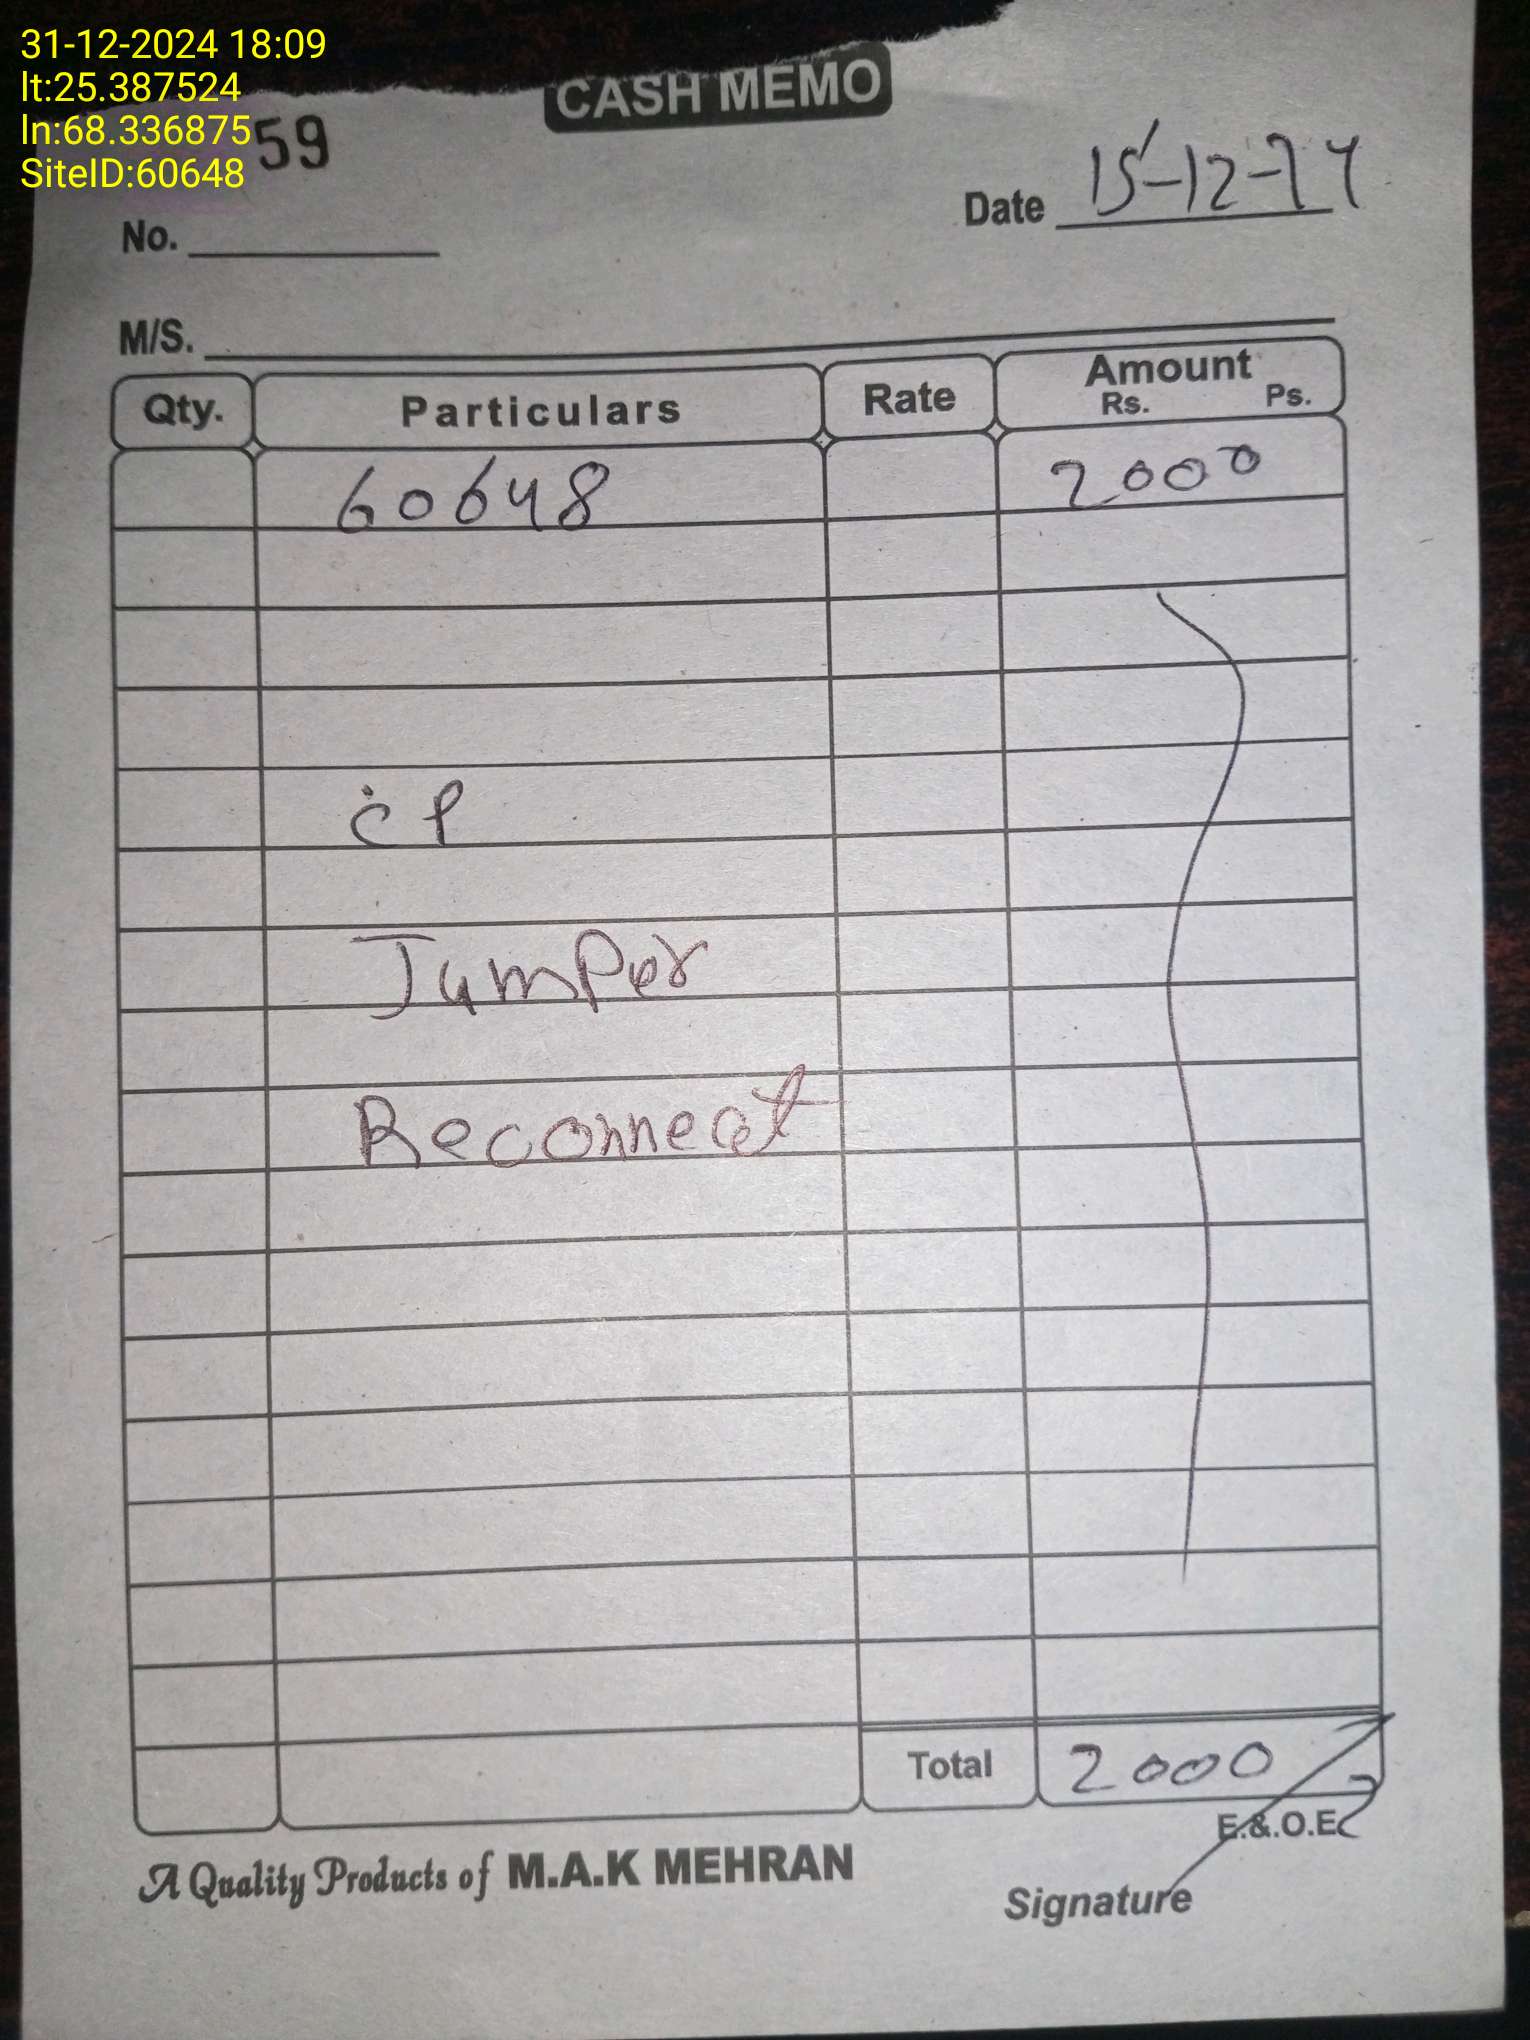 31-12-2024 18:09
lt:25.387524
ln:68.336875
SiteID:60648
59
CASH MEMO
No.
Date 15-12-24
M/S.
Qty. Particulars Rate Amount Rs. Ps.
60648 2000
CP
Jumper
Reconnect
Total 2000
E.&.O.E
A Quality Products of M.A.K MEHRAN
Signature